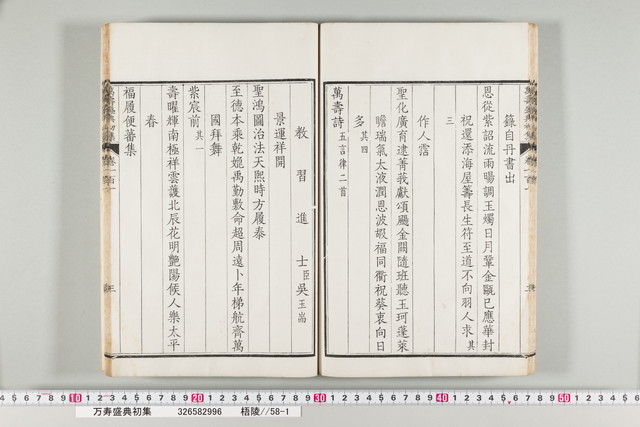 籙自丹書出
恩從紫詔流雨暘調玉燭日月鞏金甌已應華封
祝還添海屋籌長生符至道不向羽人求其
三
作人霑
聖化廣育逮菁莪獻頌颺金闕隨班聽玉珂蓬萊
瞻瑞氣太液潤恩波嘏福同衢祝葵衷向日
多其四
萬壽詩五言律二首
教習進士臣吳玉
景運祥開
聖鴻圖治法天熙時方履泰
至德本乘乾媲禹勤敷命超周遠卜年梯航齊萬
國拜舞
紫宸前其一
壽曜輝南極祥雲護北辰花明艷陽候人樂太平
春
福履便蕃集
万寿盛典初集 326582996 梧陵//58-1